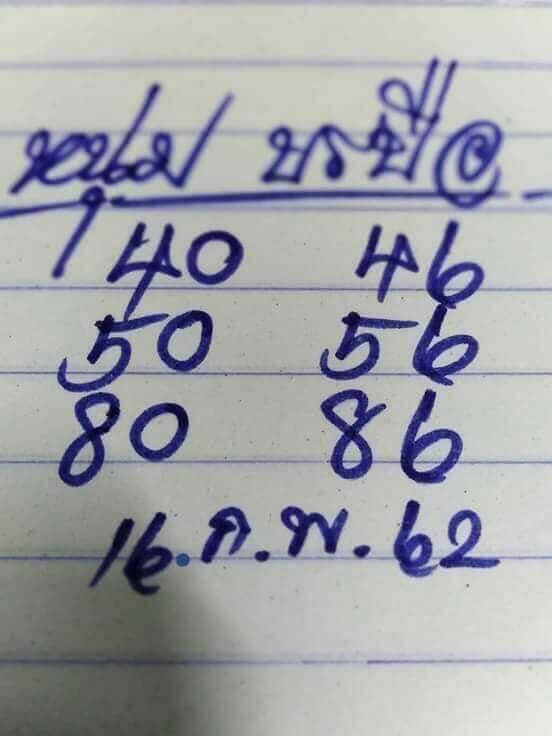 หนุ่ม บรบือ
40 46
50 56
80 86
16.ก.พ.62